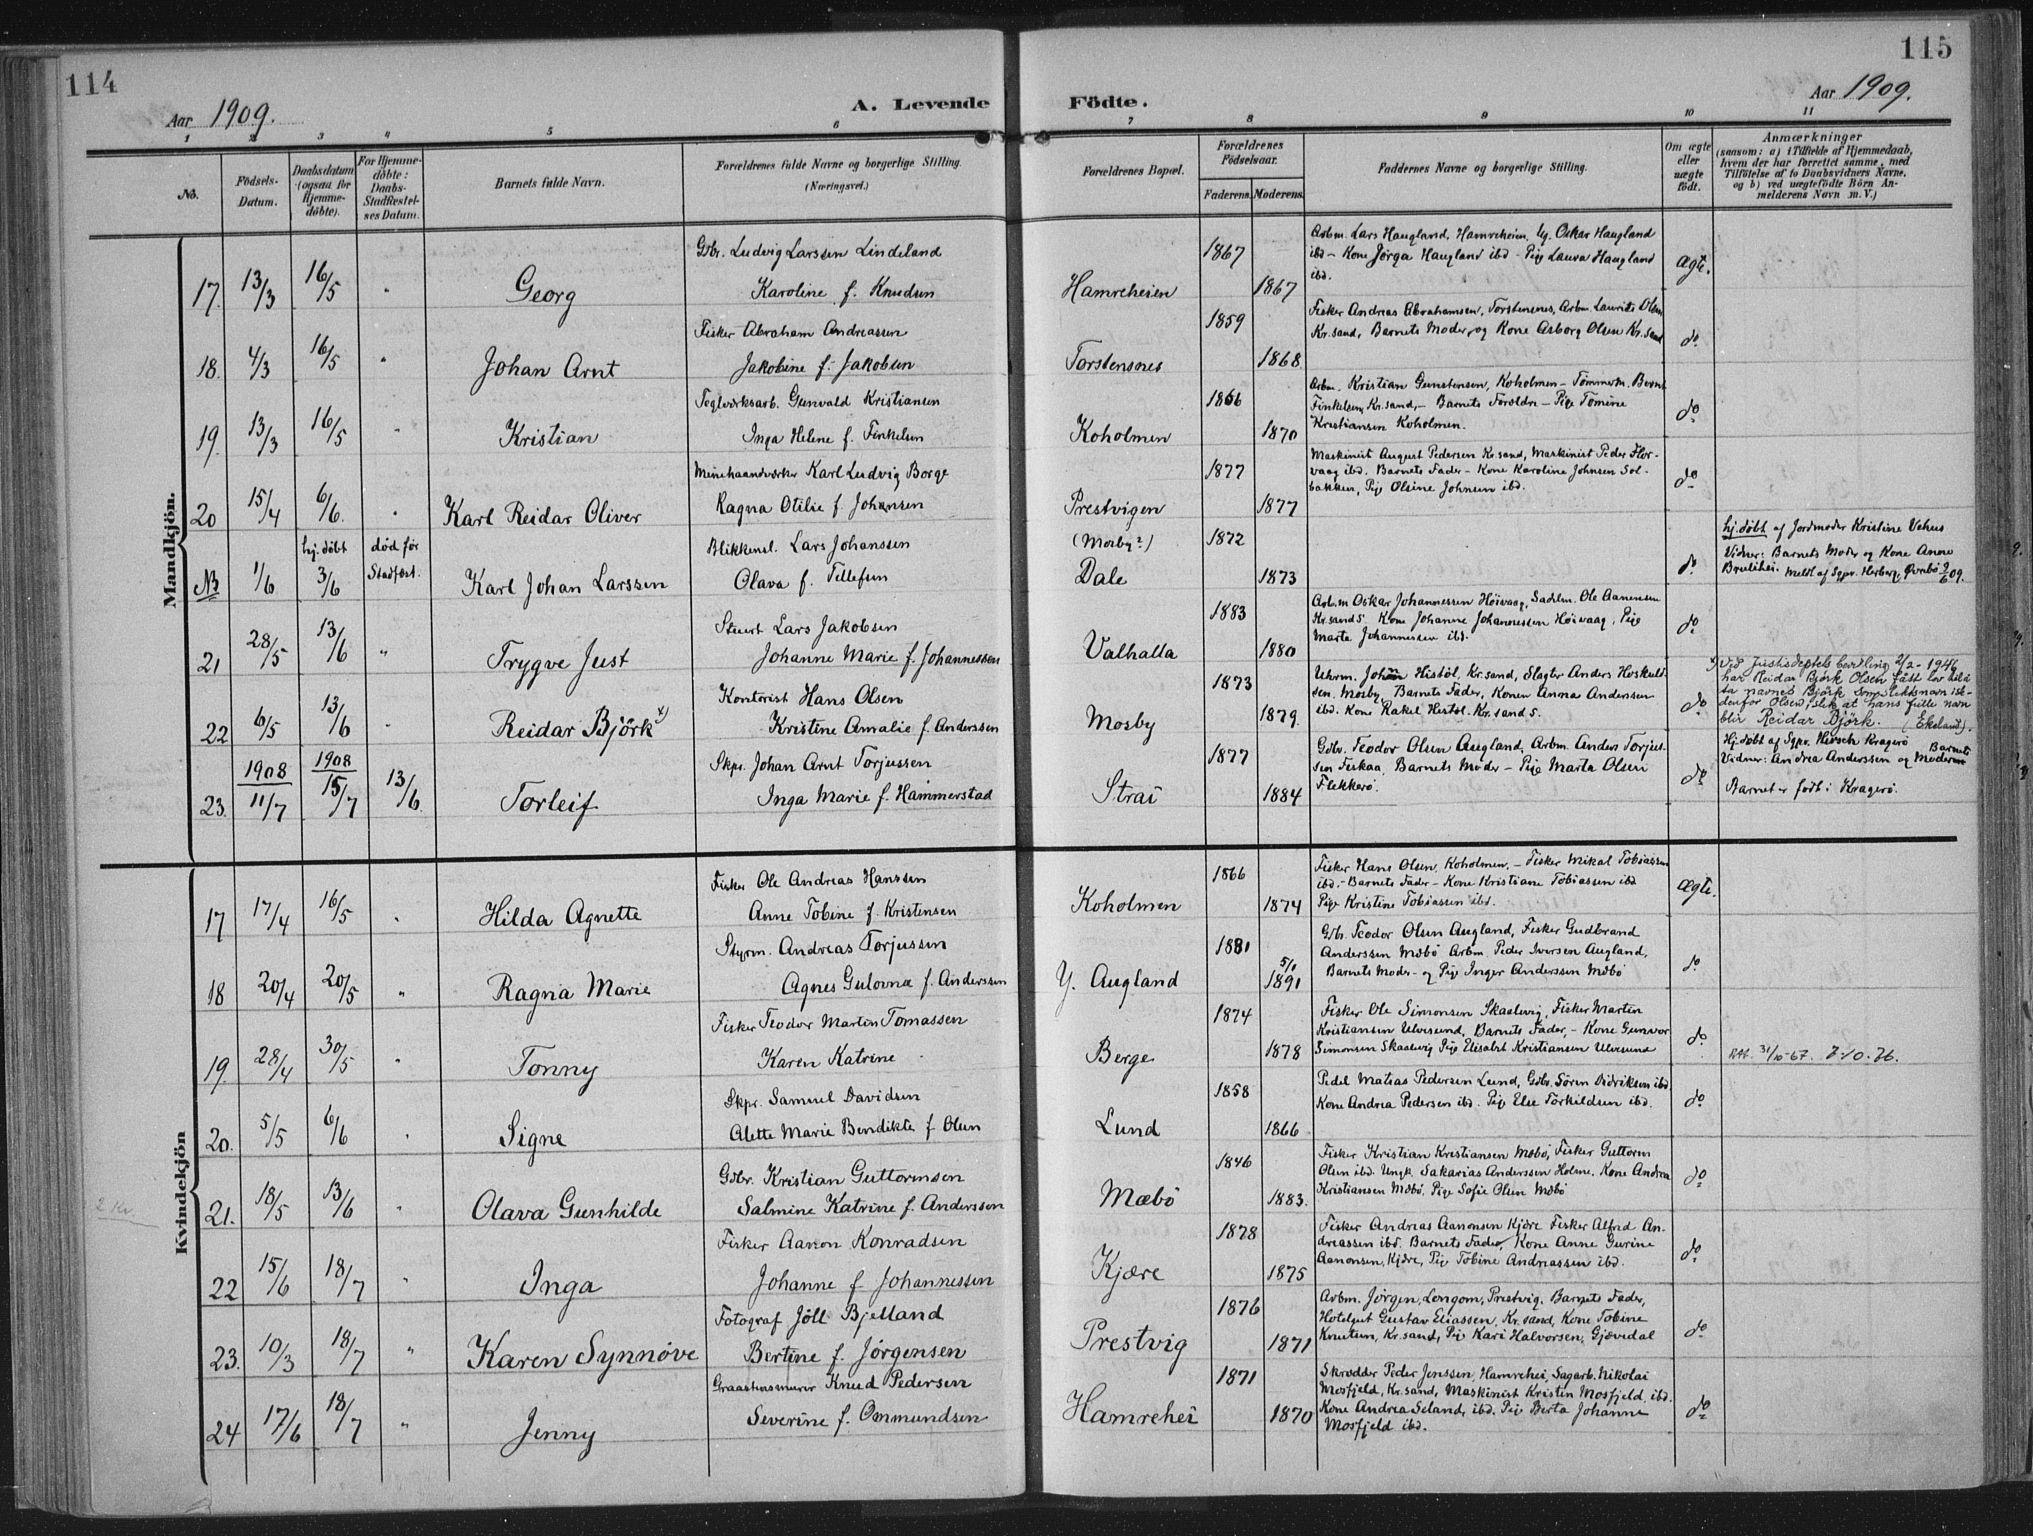 114
Aar 1909.
A. Levende
1 2 3 4 5 6
No.
Födsels-Datum.
Daabsdatum (ogsaa for Hjemme-döbte).
For Hjemme-döbte: Daabs-Stadfæstel-ses Datum.
Barnets fulde Navn.
Forældrenes fulde Navne og borgerlige Stilling. (Næringsvei.)
Mandkjön.
Gbr. Ludvig Larssen Lindeland
17. 13/3 16/5 " Georg Karoline f. Knudsen
Fisker Abraham Andreassen
18. 4/3 16/5 " Johan Arnt Jakobine f. Jakobsen
Teglværksarb. Gunvald Kristiansen
19. 13/3 16/5 " Kristian Inga Helene f. Finkelsen
Minehaandværker Karl Ludvig Borge
20 15/4 6/6. " Karl Reidar Oliver Ragna Otilie f. Johansen
hj. döbt død før Blikkensl. Lars Johanssen
No 1/6 3/6 Stadfæst. Karl Johan Larssen Olava f. Tellefsen
Stuert Lars Jakobsen
21 28/5 13/6 " Trygve Just Johanne Marie f. Johannessen
Kontorist Hans Olsen
22 6/5 13/6 " Reidar Björk x) Kristine Amalie f. Anderssen
1908 1908 Skpr. Johan Arnt Torjussen
23. 11/7 15/7 13/6. Torleif Inga Marie f. Hammerstad
Kvindekjön
Fisker Ole Andreas Hanssen
17 17/4 16/5 " Hilda Agnette Anne Tobine f. Kristensen
Styrm. Andreas Torjussen
18 20/4 20/5 " Ragna Marie Agnes Gulovna f. Anderssen
Fisker Teodor Martin Tomassen
19. 28/4 30/5 " Tonny Karen Katrine
Skpr. Samuel Davidsen
20. 5/5 6/6 " Signe Alette Marie Bendikte f. Olsen
Gbr. Kristian Guttormsen
2 Kr. 21. 18/5 13/6 " Olava Gunhilde Salmine Katrine f. Anderssen
Fisker Aanon Konradsen
22 15/6 18/7 " Inga Johanne f. Johannessen
Fotograf Jöll Bjelland
23. 10/3 18/7 " Karen Synnøve Bertine f. Jørgensen
Graastensmurer Knud Pedersen
24 17/6 18/7 " Jenny Severine f. Ommundsen
115
Födte. Aar 1909.
7 8 9 10 11
Forældrenes Bopæl.
Forældrenes Födselsaar.
Faderens. Moderens.
Faddernes Navne og borgerlige Stilling.
Om ægte eller uægte födt.
Anmærkninger
(saasom: a) i Tilfælde af Hjemmedaab,
hvem der har forrettet samme, med
Tilföielse af to Daabsvidners Navne,
og b) ved uægtefödte Börn An-
melderens Navn m. V.)
Hamreheien 1867 1867 ægte.
Arbm. Lars Haugland, Hamreheien, Ug. Oskar Haugland
ibd – Kone Jørga Haugland ibd – Pige Laura Haugland
ibd.
Torstensnes 1859 1868 do
Fisker Andreas Abrahamsen, Torstensnes, Arbm. Laurits Olsen
Kr.sand, Barnets Moder, og Kone Asborg Olsen Kr.sand
Koholmen 1866 1870 do
Arbm. Kristian Gunstensen, Koholmen – Tömmerm. Bernt
Finkelsen, Kr.sand, – Barnets Forældre – Pige Tomine
Kristiansen Koholmen.
Prestvigen 1877 1877 do
Maskinist August Pedersen Kr.sand, Maskinist Peder Flor-
vaag ibd. Barnets Fader – Kone Karoline Johnsen Sol-
bakken, Pige Olsine Johnsen ibd.
(Mosby?)
Dale 1872 1873 do
hj. döbt af Jordmoder Kristine Vehus
Vidner: Barnets Moder og Kone Anne
Brulihei. Meldt af Sgpr. Herberg, Øvrebø 9/6 09.
Valhalla 1883 1880 do
Arb.m Oskar Johannessen Høivaag, Sadelm. Ole Aanensen
Kr.sand S. Kone Johanne Johannessen Høivaag, Pige
Marta Johannessen ibd.
Mosby 1873 1879. do
Uhrm. Johan Histøl, Kr.sand, Slagter Anders Hoskuld-
sen, Mosby, Barnets Fader, Konen Anna Anderssen
ibd. Kone Rakel Histøl. Kr.sand S.
x) Ved Justisdeptets bevilling 2/2-1946
har Reidar Björk Olsen fått lov til å
ta navnet Björk som slektsnavn iste-
denfor Olsen, slik at hans fulle navn
blir Reidar Björk. (Ekeland).
Strai 1877 1884 do
Gbr. Teodor Olsen Augland, Arbm. Anders Torjus-
sen Fiskaa, Barnets Moder – Pige Marta Olsen
Flekkerø.
Hj. döbt af Sgpr. Hirsch Kragerø
Vidner: Andrea Anderssen og Barnets Moderen
Barnet er född i Kragerø.
Koholmen 1866 1874 ægte.
Fisker Hans Olsen, Koholmen, – Fisker Mikal Tobiassen
ibd. – Barnets Fader – Kone Kristiane Tobiassen ibd
Pige Kristine Tobiassen ibd.
Y. Augland 1881 5/1 1891 do
Gbr. Teodor Olsen Augland, Fisker Gudbrand
Anderssen Mæbø Arbm Peder Iversen Augland,
Barnets Moder – og Pige Inger Anderssen Mæbø
Berge 1874 1878 do
Fisker Ole Simonsen Skaalevig, Fisker Martin
Kristiansen Ulvesund, Barnets Fader, – Kone Gunvor
Simonsen Skaalevig Pige Elisabet Kristiansen Ulvesund
Att. 31/10-67. 7-10-76.
Lund 1858 1866 do
Pedel Matias Pedersen Lund, Gbr. Sören Didriksen ibd
Kone Andrea Pedersen ibd. Pige Else Törkildsen ibd.
Mæbö 1846 1883. do
Fisker Kristian Kristiansen Mæbö, Fisker Guttorm
Olsen ibd. Ungk. Sakarias Anderssen Holme. Kone Andrea
Kristiansen Mæbö, Pige Sofie Olsen Mæbö
Kjære 1878 1875 do
Fisker Andreas Aanonsen Kjære Fisker Alfred An-
dreassen ibd. Barnets Fader, Kone Anne Gurine
Aanonsen, Kjære, Pige Tobine Andreassen ibd.
Prestvig 1876 1871 do
Arbm. Jörgen Longom, Prestvig, Barnets Fader,
Hotelgut Gustav Eliassen, Kr.sand, Kone Tobine
Knutsen, Kr.sand, Pige Kari Halvorsen, Gjøvedal
Hamrehei 1871 1870 do
Skrædder Peder Jenssen, Hamrehei, Sagarb. Nikolai
Mosfjeld, Kr.sand, Maskinist Kristen Mosfjeld, ibd.
Kone Andrea Seland, ibd. Pige Berta Johanne
Mosfjeld ibd.